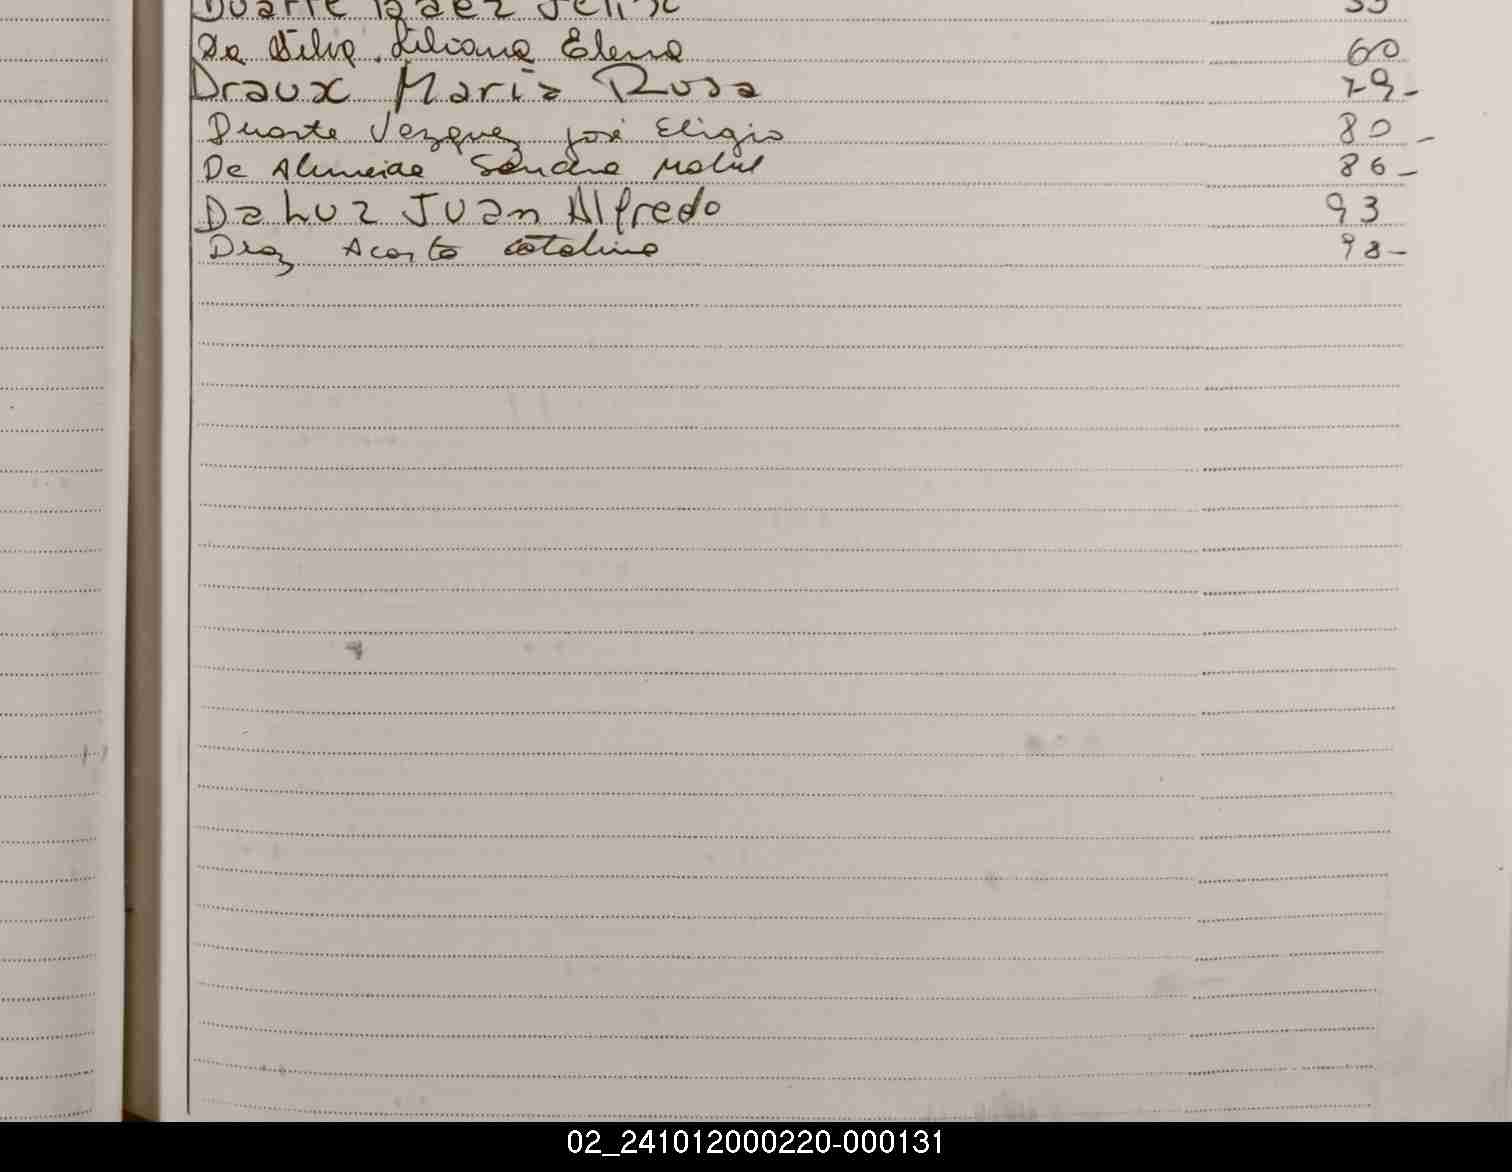 Duarte Felix
Da Silva Liliana Elena 60
Draux Maria Rosa 79-
Duarte Vezquez José Eligio 80-
De Almeida Sandra Mabel 86-
Da Luz Juan Alfredo 93
Diaz Acosta Catalina 98-
02_241012000220-000131